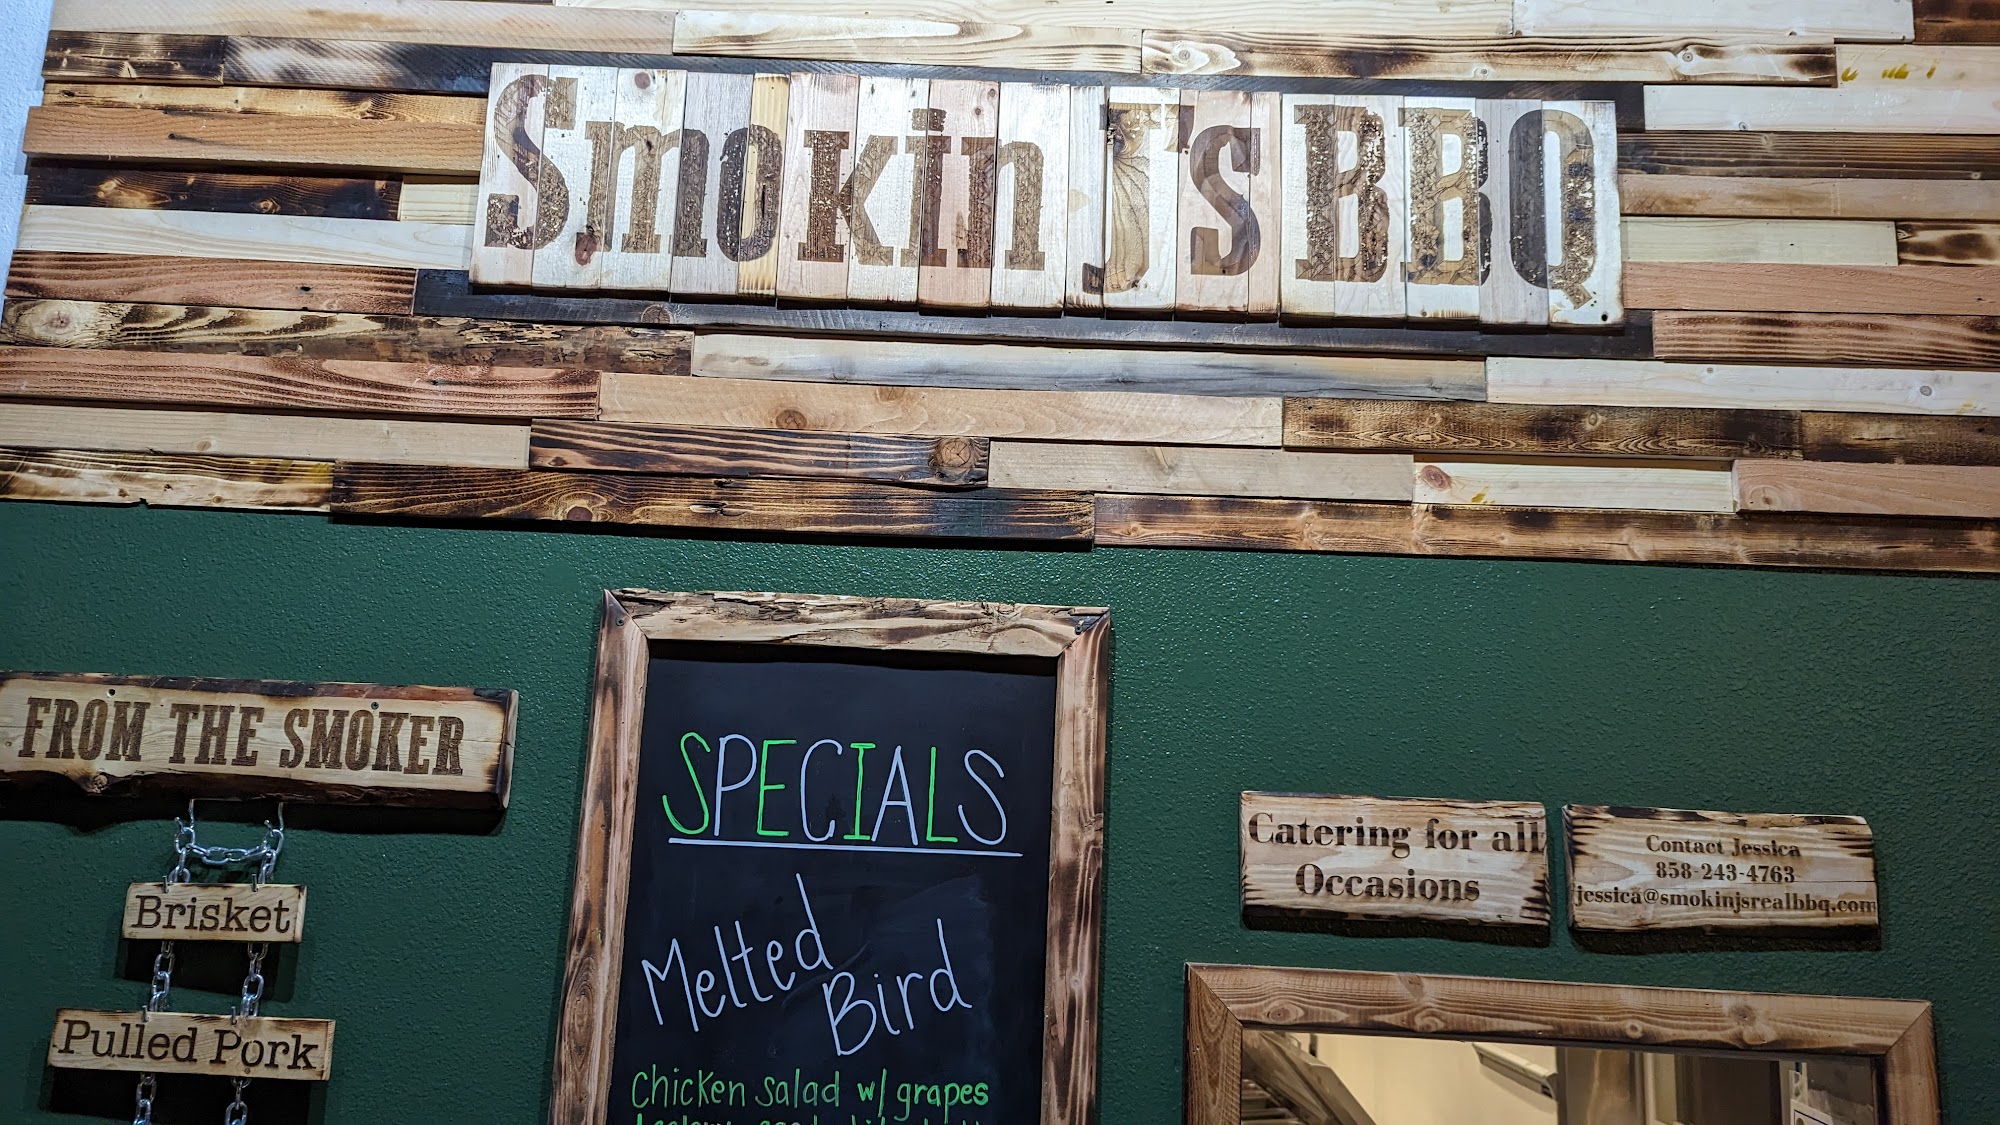 Smokin J's BBQ
FROM THE SMOKER
Brisket
Pulled Pork
SPECIALS
Melted
Bird
Chicken salad w/ grapes
Catering for all
Occasions
Contact Jessica
858-243-4763
jessica@smokinjsrealbbq.com